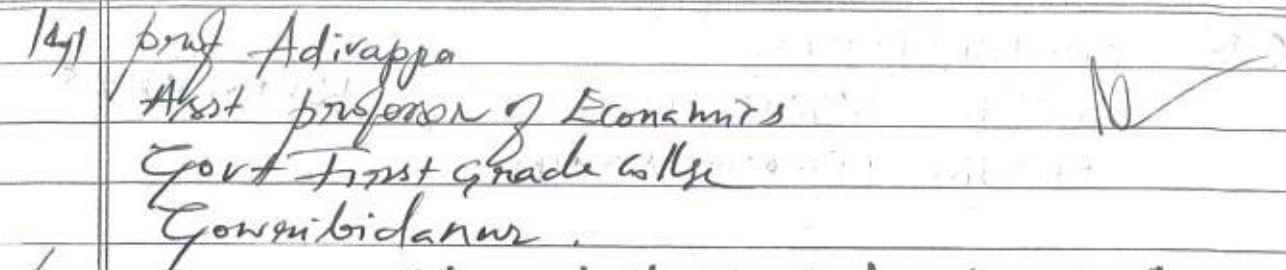 14) prof Adivappa
Asst professor of Economics
Govt First Grade College
Gowribidanur.